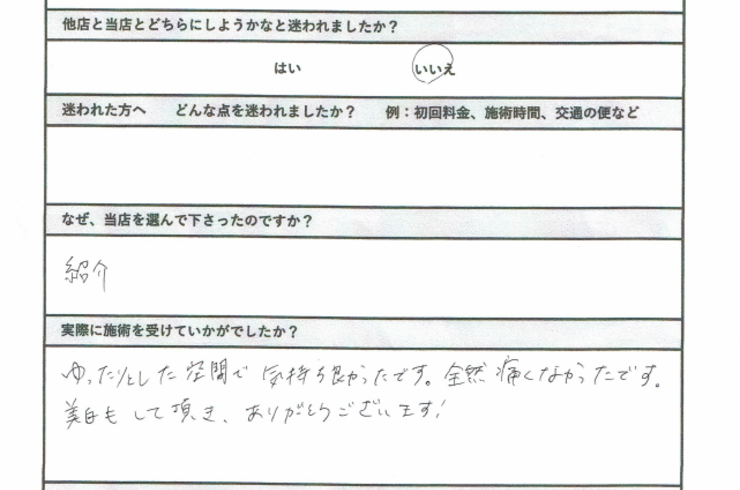 他店と当店とどちらにしようかなと迷われましたか？
はい　いいえ
迷われた方へ　どんな点を迷われましたか？　例：初回料金、施術時間、交通の便など
なぜ、当店を選んで下さったのですか？
紹介
実際に施術を受けていかがでしたか？
ゆったりとした空間で気持ち良かったです。全然痛くなかったです。
美白もして頂き、ありがとうございます!